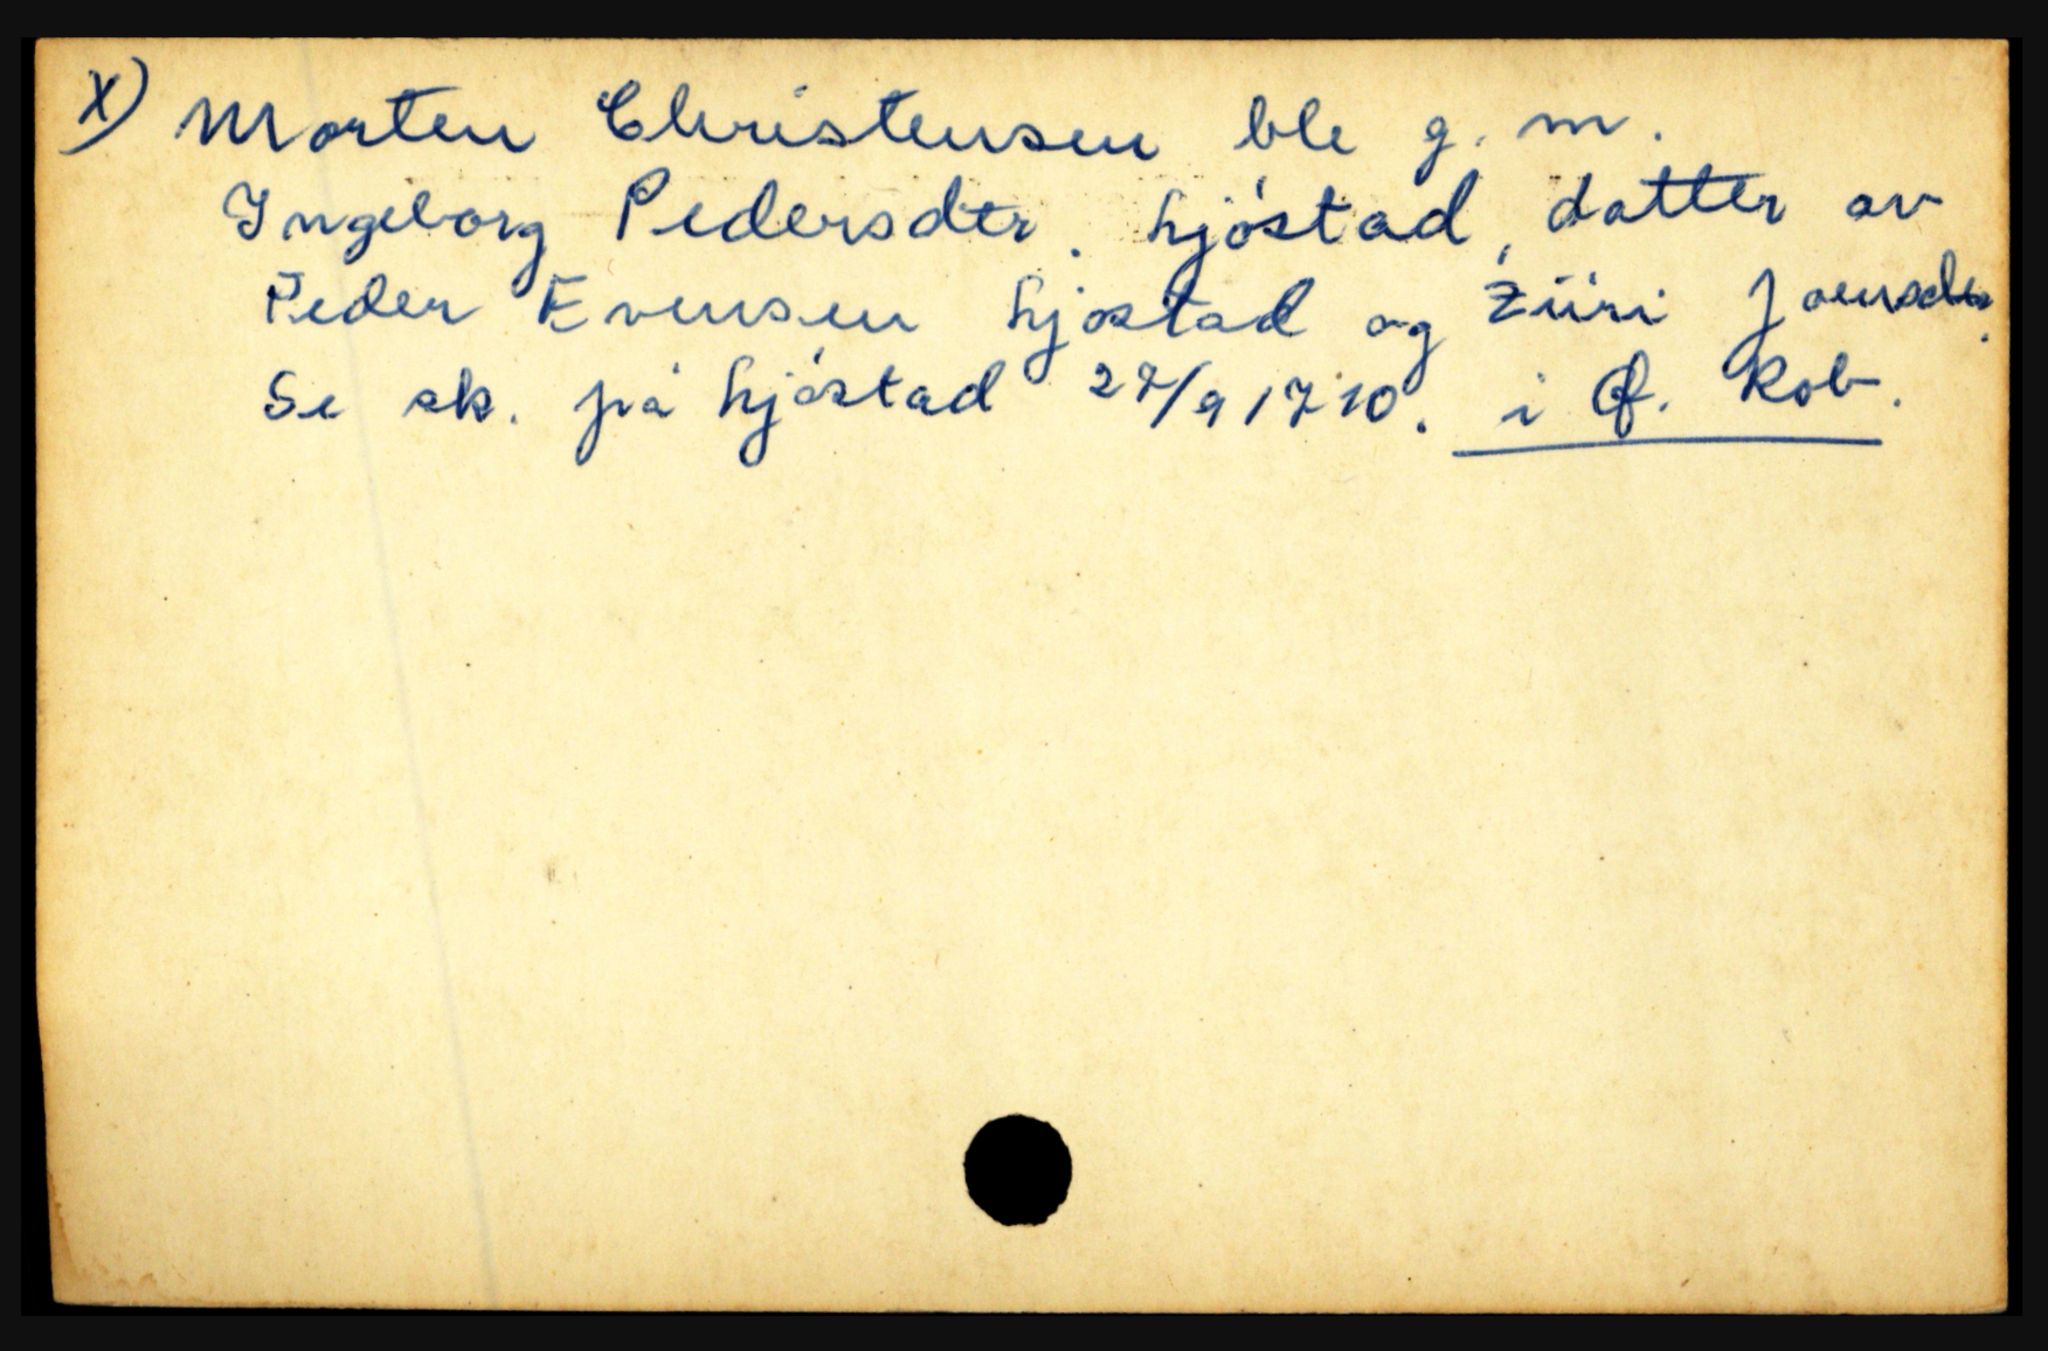 X) Morten Christensen ble g. m.
Ingeborg Pedersdtr. hjøstad, datter av
Peder Evensen hjøstad og Ziiri Joensdtr.
Se sk. på hjøstad 27/9 1710. i Ø. Rob.